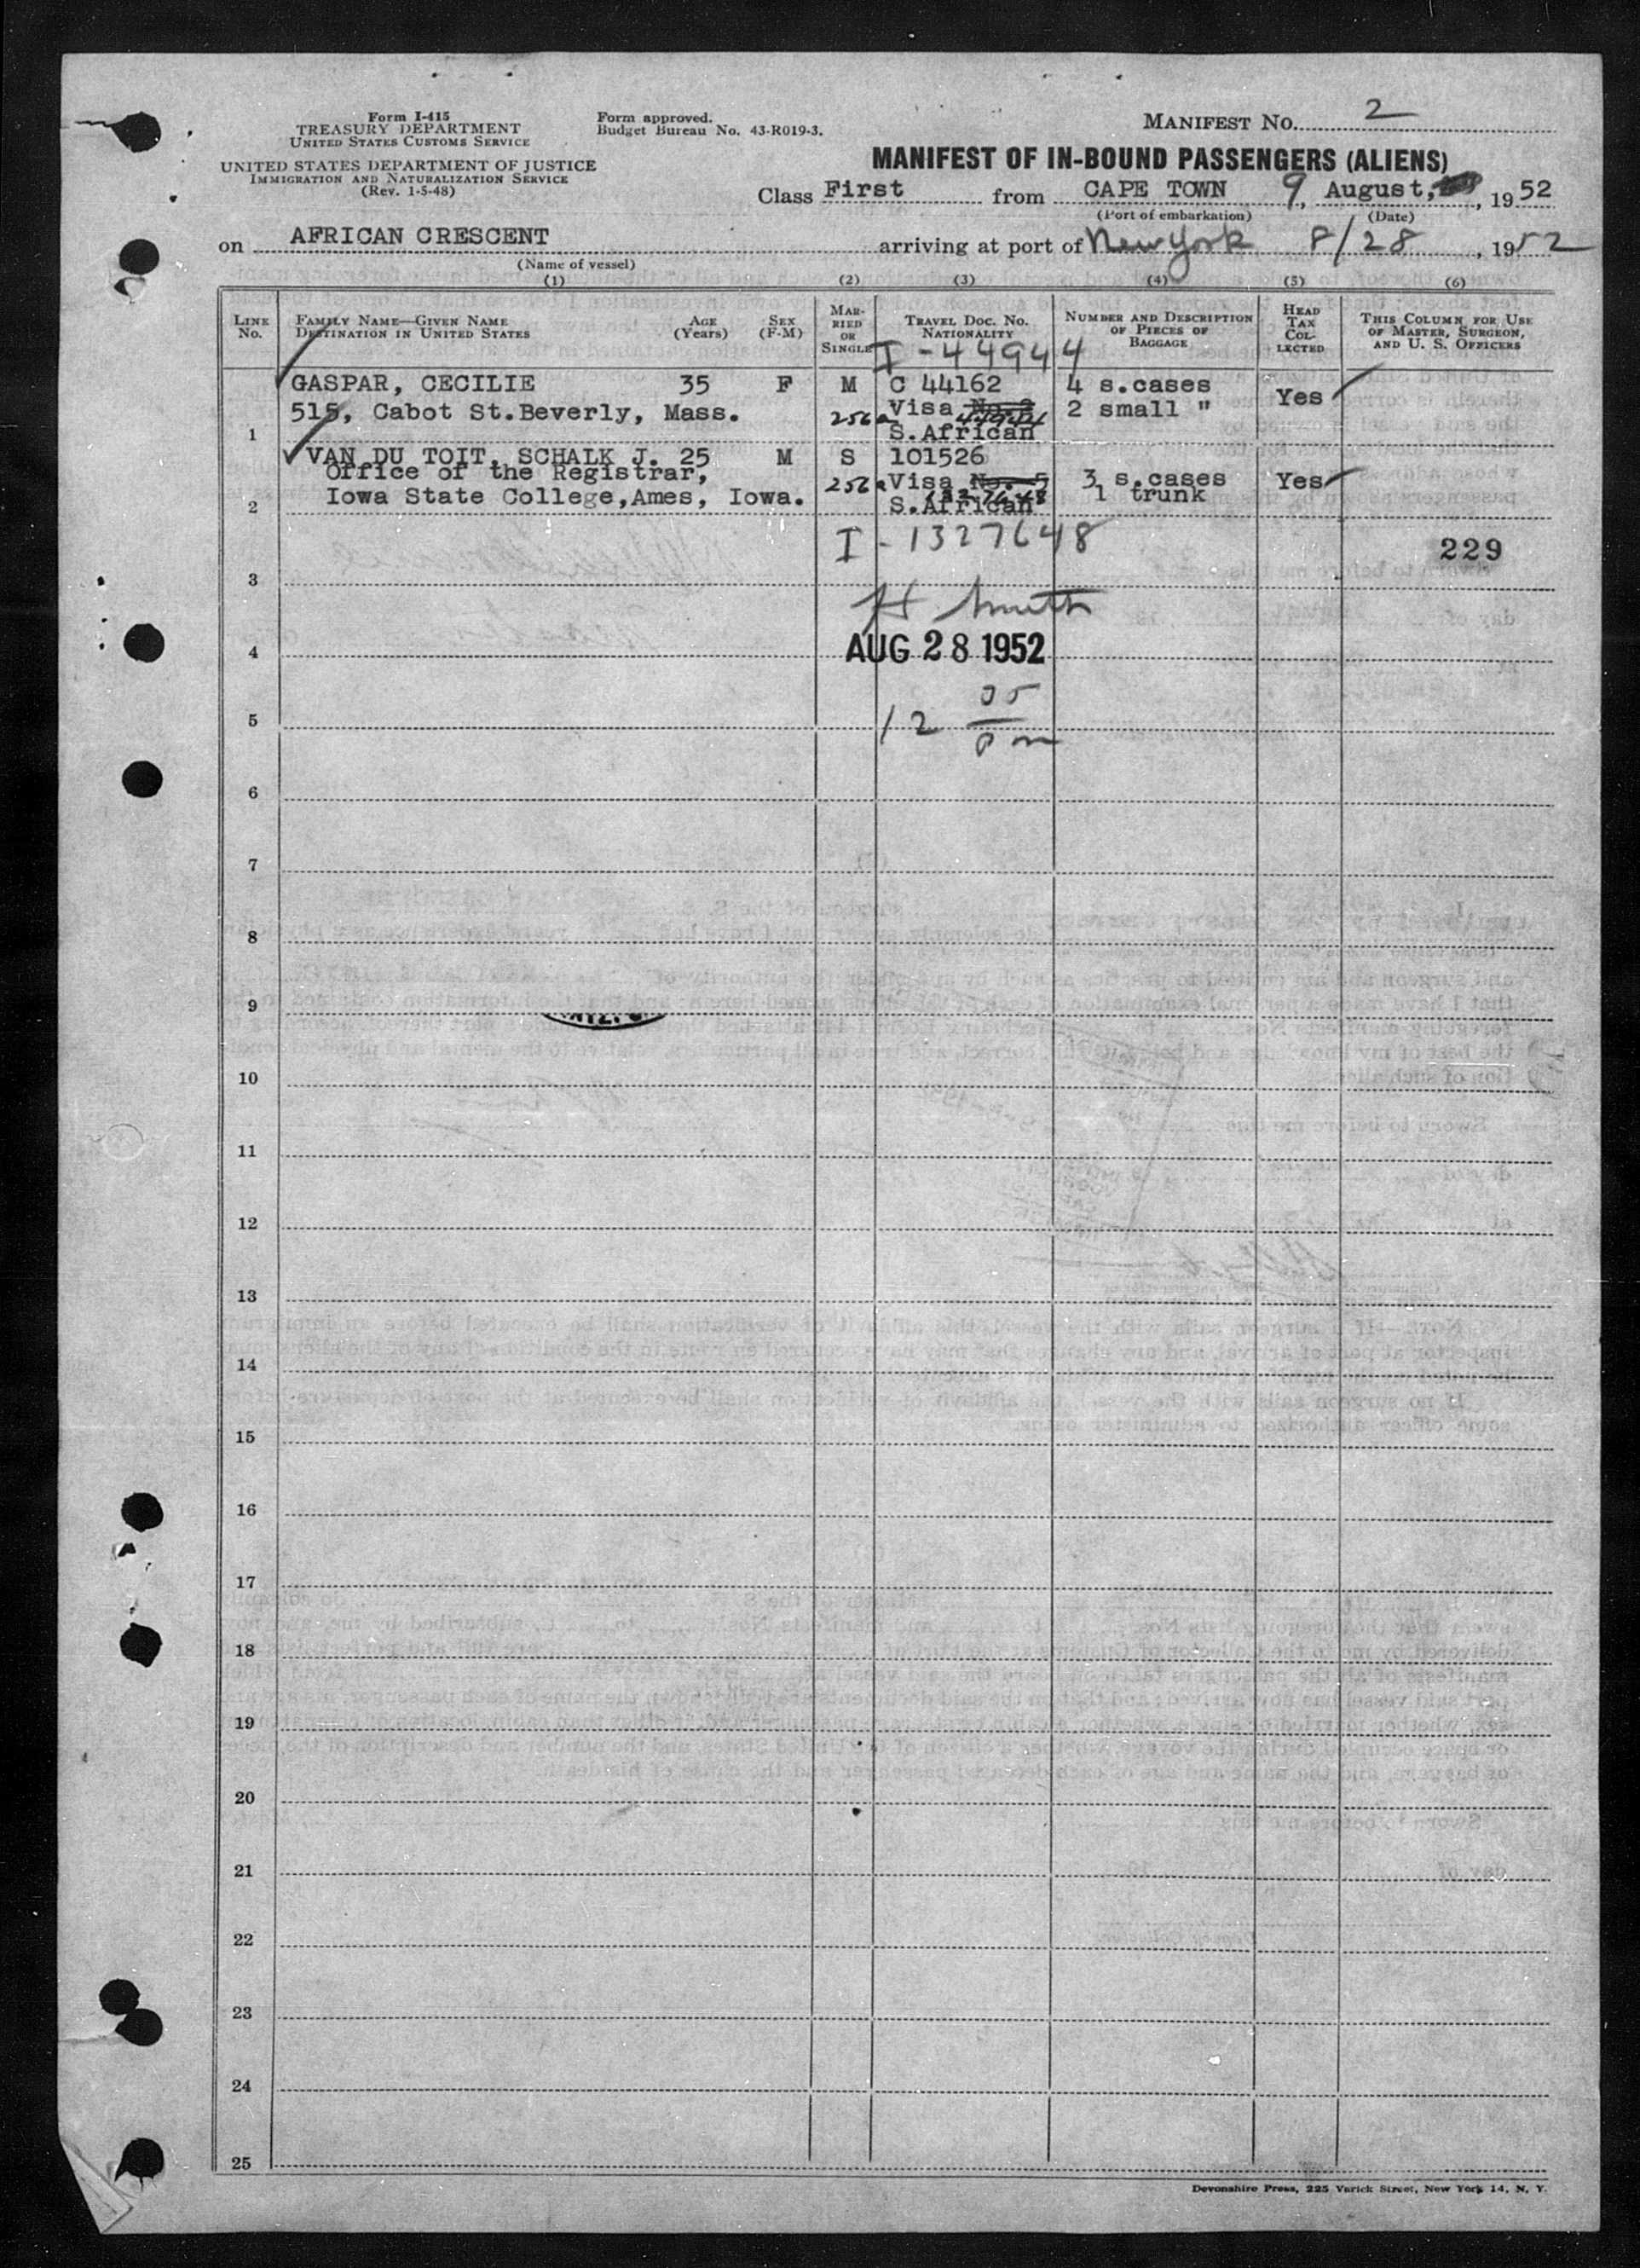 Form I-415
TREASURY DEPARTMENT
UNITED STATES CUSTOMS SERVICE
UNITED STATES DEPARTMENT OF JUSTICE
IMMIGRATION AND NATURALIZATION SERVICE
(Rev. 1-5-48)
Form approved.
Budget Bureau No. 43-R019-3.
MANIFEST NO. 2
MANIFEST OF IN-BOUND PASSENGERS (ALIENS)
Class First from CAPE TOWN 9, August, 1952
(Port of embarkation) (Date)
on AFRICAN CRESCENT arriving at port of New York 8/28, 1952
(Name of vessel)
(1) (2) (3) (4) (5) (6)
LINE No.
FAMILY NAME—GIVEN NAME
DESTINATION IN UNITED STATES
AGE (Years)
SEX (F-M)
MARRIED OR SINGLE
TRAVEL DOC. NO.
NATIONALITY
NUMBER AND DESCRIPTION OF PIECES OF BAGGAGE
HEAD TAX COLLECTED
THIS COLUMN FOR USE OF MASTER, SURGEON, AND U. S. OFFICERS
I-44944
GASPAR, CECILIE 35 F M C 44162 4 s.cases Yes
515, Cabot St.Beverly, Mass. 256a Visa No. 44944 2 small "
1 S.African
VAN DU TOIT, SCHALK J. 25 M S 101526
Office of the Registrar, 256a Visa No. 5 3 s.cases Yes
Iowa State College,Ames, Iowa. 1 trunk
2 S.African
I-1327648
229
3
H Smith
4 AUG 28 1952
5 12 05 pm
6
7
8
9
10
11
12
13
14
15
16
17
18
19
20
21
22
23
24
25
Devonshire Press, 225 Varick Street, New York 14, N. Y.